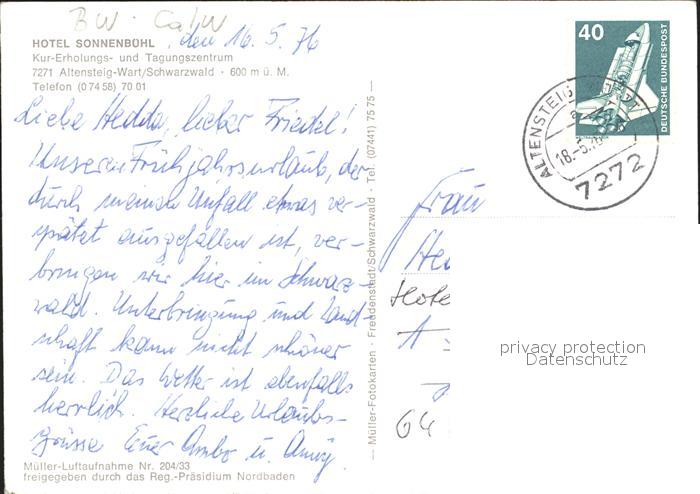 BW - Calw
HOTEL SONNENBÜHL
den 16.5.76
Kur-Erholungs- und Tagungszentrum
7271 Altensteig-Wart/Schwarzwald · 600 m ü. M.
Telefon (0 74 58) 70 01
Liebe Hedda, lieber Friedel!
Unseren Frühjahrsurlaub, der
durch meinen Unfall etwas ver-
spätet ausgefallen ist, ver-
bringen wir hier im Schwarz-
wald. Unterbringung und Land-
schaft kann nicht schöner
sein. Das Wetter ist ebenfalls
herrlich. Herzliche Urlaubs-
grüsse Euer u.
Müller-Luftaufnahme Nr. 204/33
freigegeben durch das Reg.-Präsidium Nordbaden
— Müller-Fotokarten · Freudenstadt/Schwarzwald · Tel. (07441) 75 75 —
40
DEUTSCHE BUNDESPOST
ALTENSTEIG
18.-5.76
7272
Frau
He
Hote
A
64
privacy protection
Datenschutz